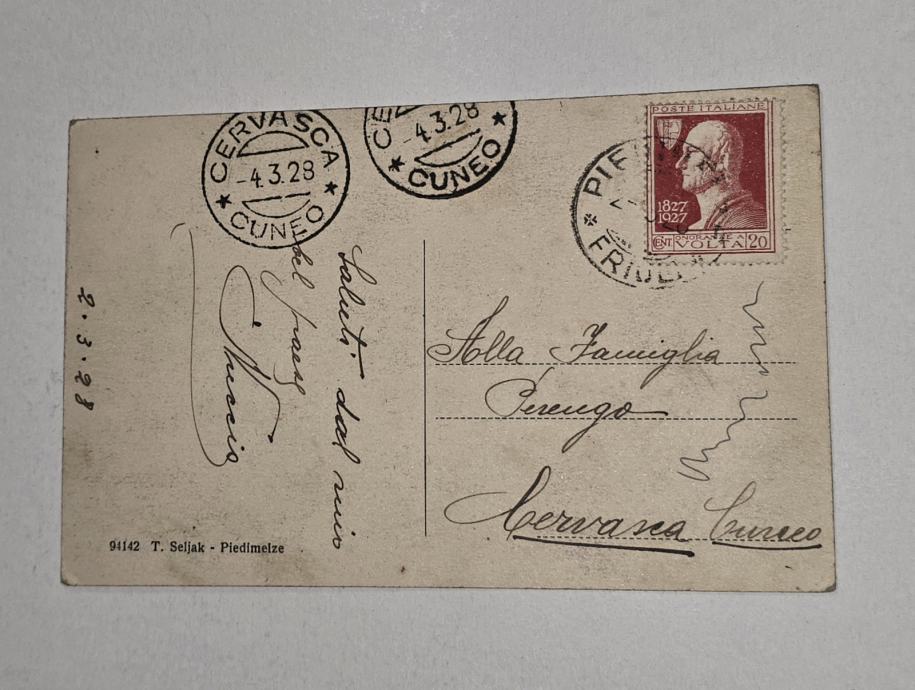 CERVASCA
-4.3.28
CUNEO
-4.3.28
CUNEO
POSTE ITALIANE
1827
1927
CENT. ONORANZE A VOLTA 20
FRIULI
2.3.28
Saluti dal mio
bel paese
Nuccio
Alla Famiglia
Perengo
Cervasca Cuneo
94142 T. Seljak - Piedimelze